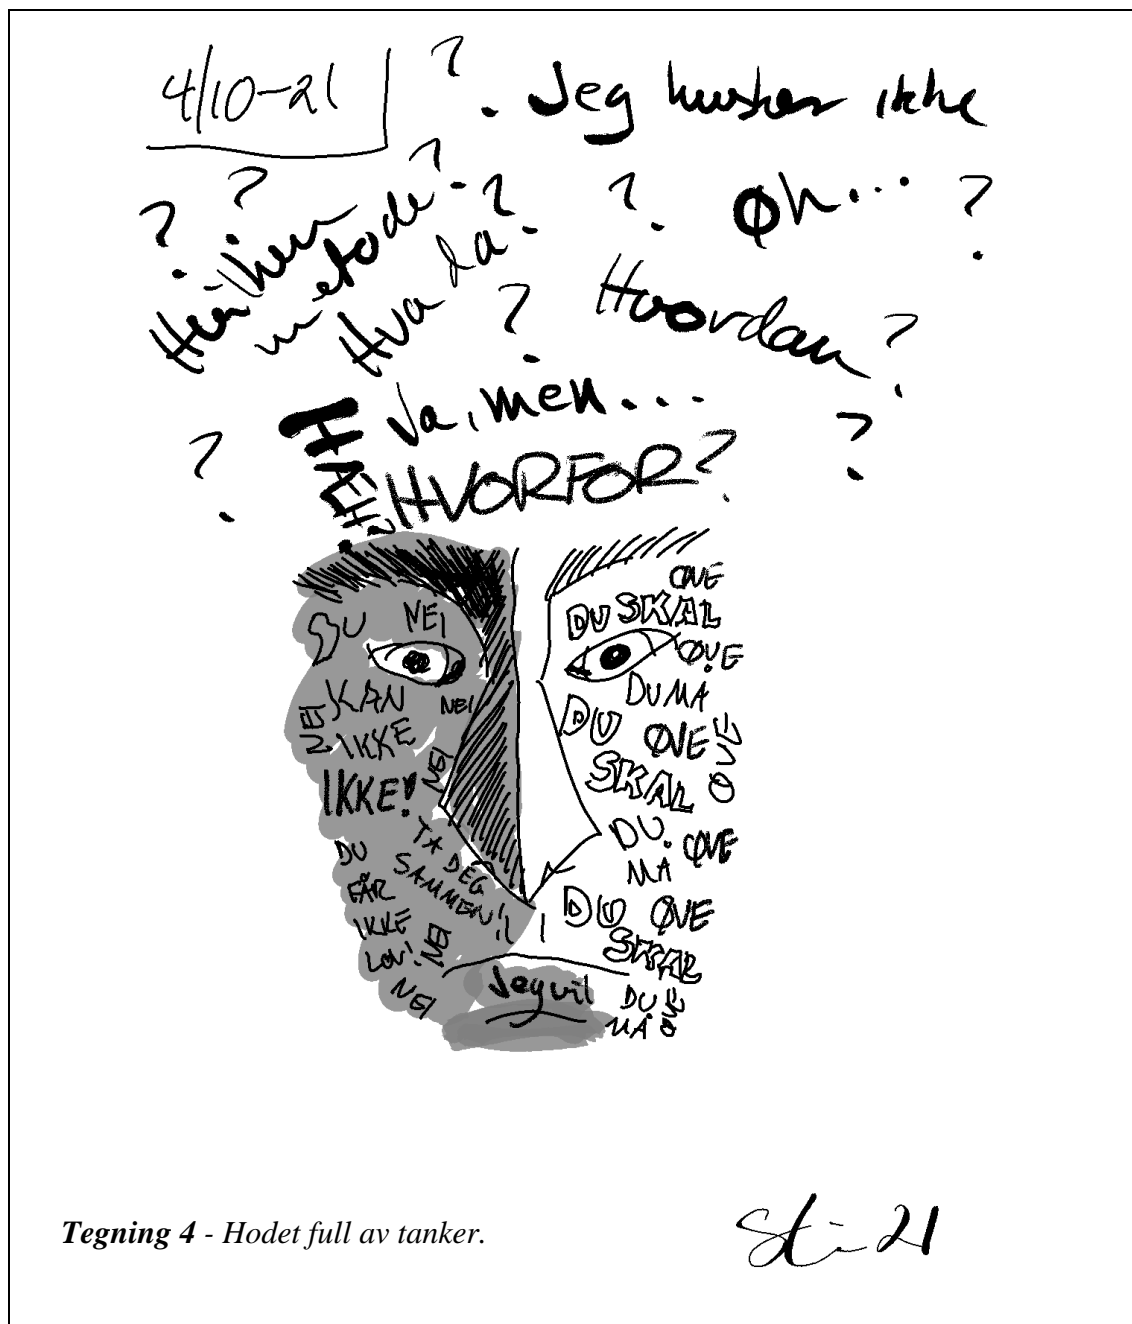 4/10-21
? Jeg husker ikke
? ?
Hvilken metode?
Hva da?
?
Øh...
?
?
Hvordan?
Ja, men...
?
HÆH?
HVORFOR?
?
DU NEI
KAN NEI
NEI
IKKE
IKKE!
NEI
TA DEG
SAMMEN!
DU
FÅR
IKKE
LOV!
NEI
NEI
ØVE
DU SKAL
ØVE
DU MÅ
DU ØVE
ØVE
SKAL
DU
MÅ
ØVE
DU ØVE
SKAL
DU
MÅ
ØVE
Jeg vil
Tegning 4 - Hodet full av tanker.
21